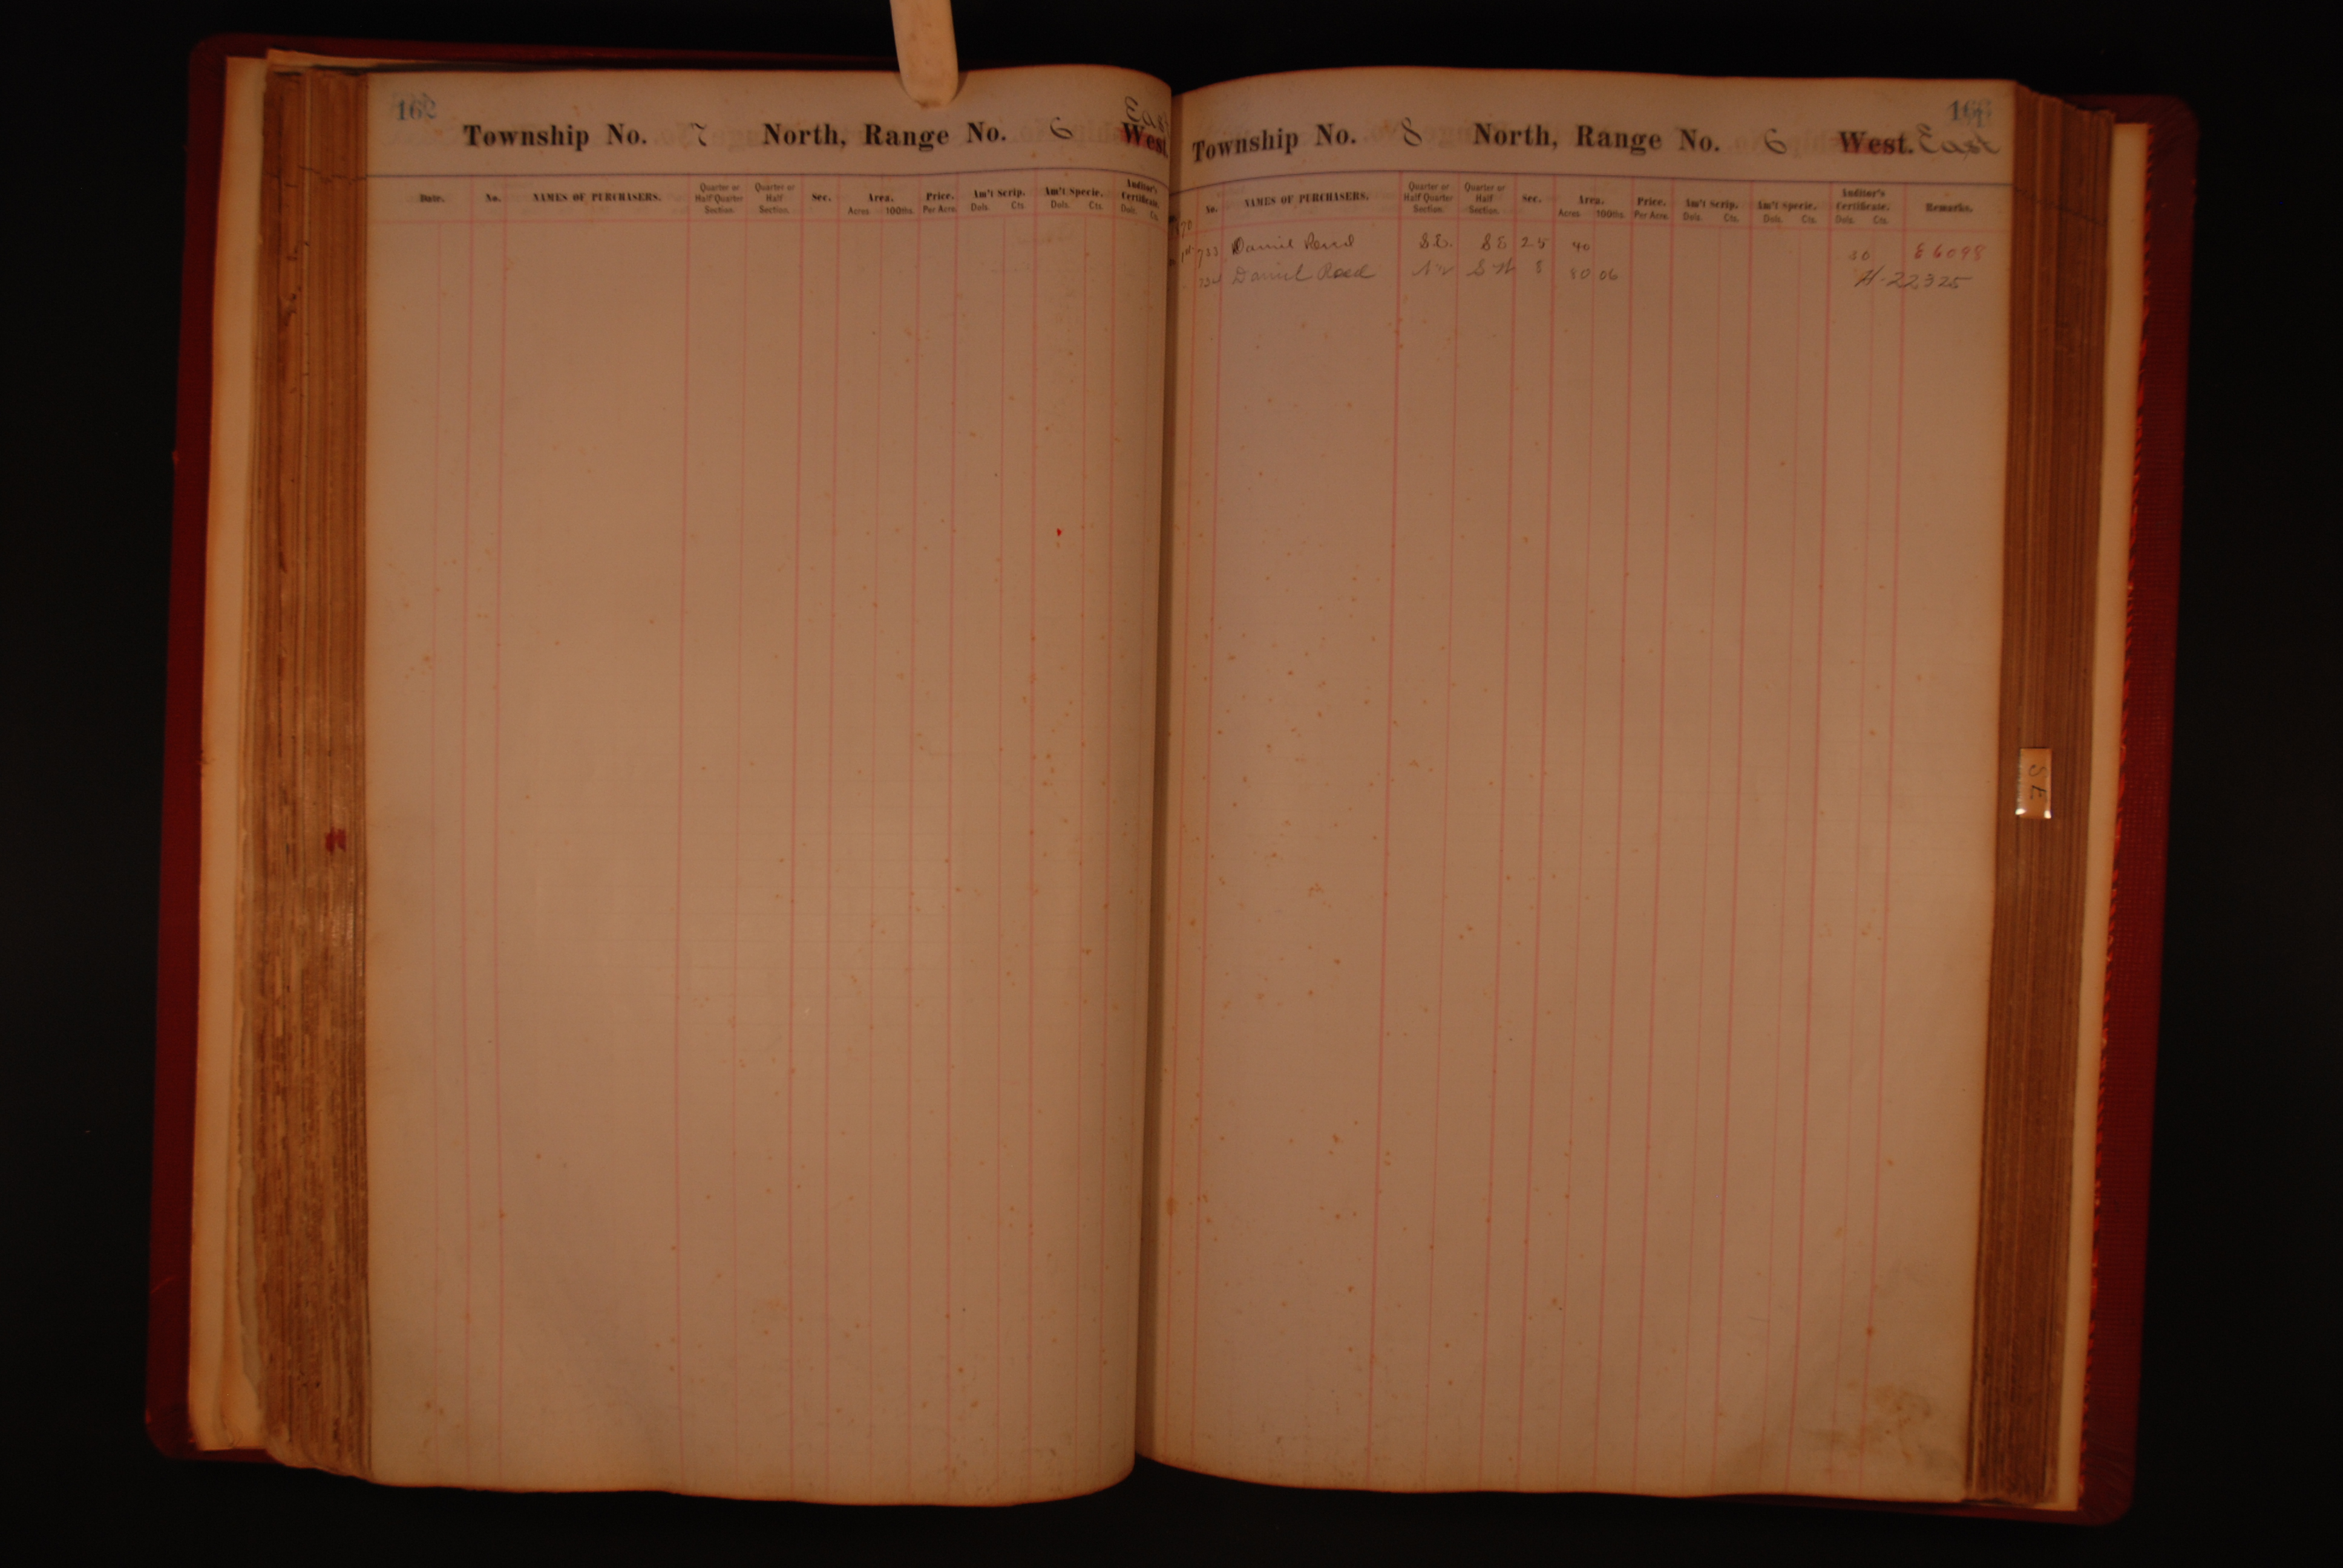 162
Township No. 7 North, Range No. 6 West. East
Date. No. NAMES OF PURCHASERS. Quarter or Half Quarter Section. Quarter or Half Section. Sec. Area. Acres. 100ths. Price. Per Acre. Am't Scrip. Dols. Cts. Am't Specie. Dols. Cts. Auditor's Certificate. Dols. Cts.
Township No. 8 North, Range No. 6 West. East
No. NAMES OF PURCHASERS. Quarter or Half Quarter Section. Quarter or Half Section. Sec. Area. Acres. 100ths. Price. Per Acre. Am't Scrip. Dols. Cts. Am't Specie. Dols. Cts. Auditor's Certificate. Dols. Cts. Remarks.
1st 733 Daniel Reed S.E. SE 25 40 30 E6098
734 Daniel Reed SW 8 80 06 H-22325
SE